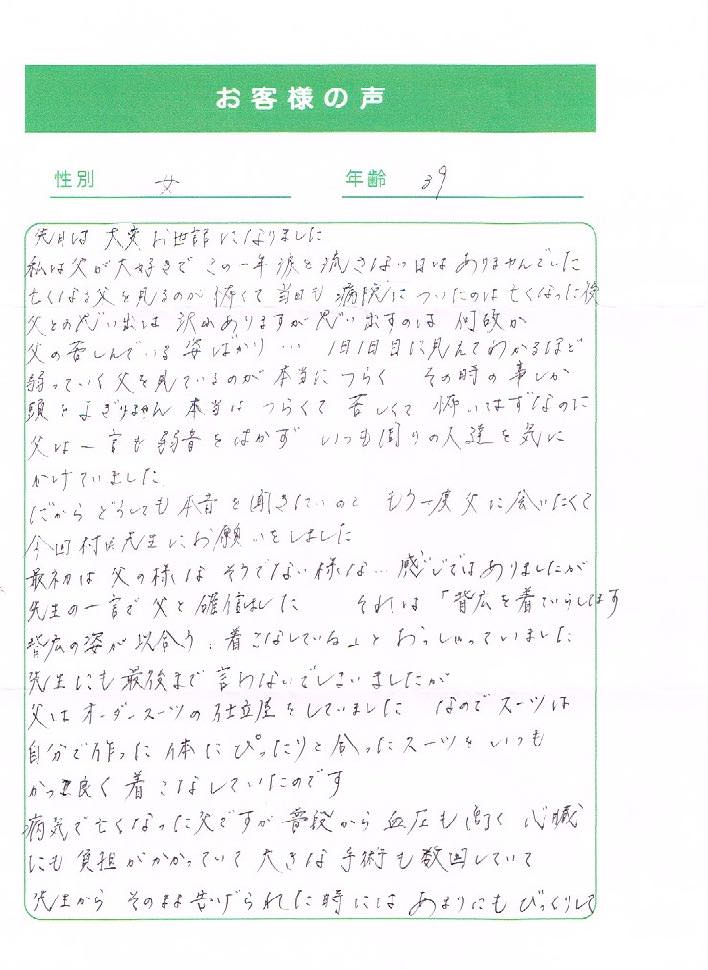 お客様の声
性別 女 年齢 39
先日は 大変 お世話になりました
私は父が大好きで この一年 涙を流さない日は ありませんでした
亡くなる父を見るのが 怖くて 当日も 病院に ついたのは 亡くなった後
父との思い出は 沢山ありますが 思い出すのは 何故か
父の苦しんでいる 姿ばかり… 1日1日目に見えてわかるほど
弱っていく父を見ているのが 本当に つらく その時の事しか
頭をよぎりません 本当は つらくて 苦しくて 怖いはずなのに
父は一言も弱音をはかず いつも周りの人達を気に
かけていました
だから どうしても本音を聞きたいのと もう一度父に会いたくて
今回村 先生にお願いをしました
最初は 父の様な そうでない様な… 感じではありましたが
先生の一言で 父と確信しました それは 「背広を着ていらしてます
背広の姿が似合う、着こなしているね」と おっしゃっていました
先生にも最後まで 言わないでしまいましたが
父はオーダースーツの 仕立屋をしていました なのでスーツは
自分で作った 体にぴったりと合ったスーツを いつも
かっこ良く 着こなしていたのです
病気で亡くなった父ですが 普段から 血圧も高く 心臓
にも 負担がかかっていて 大きな手術も数回していて
先生から そのまま告げられた時には あまりにもびっくりして